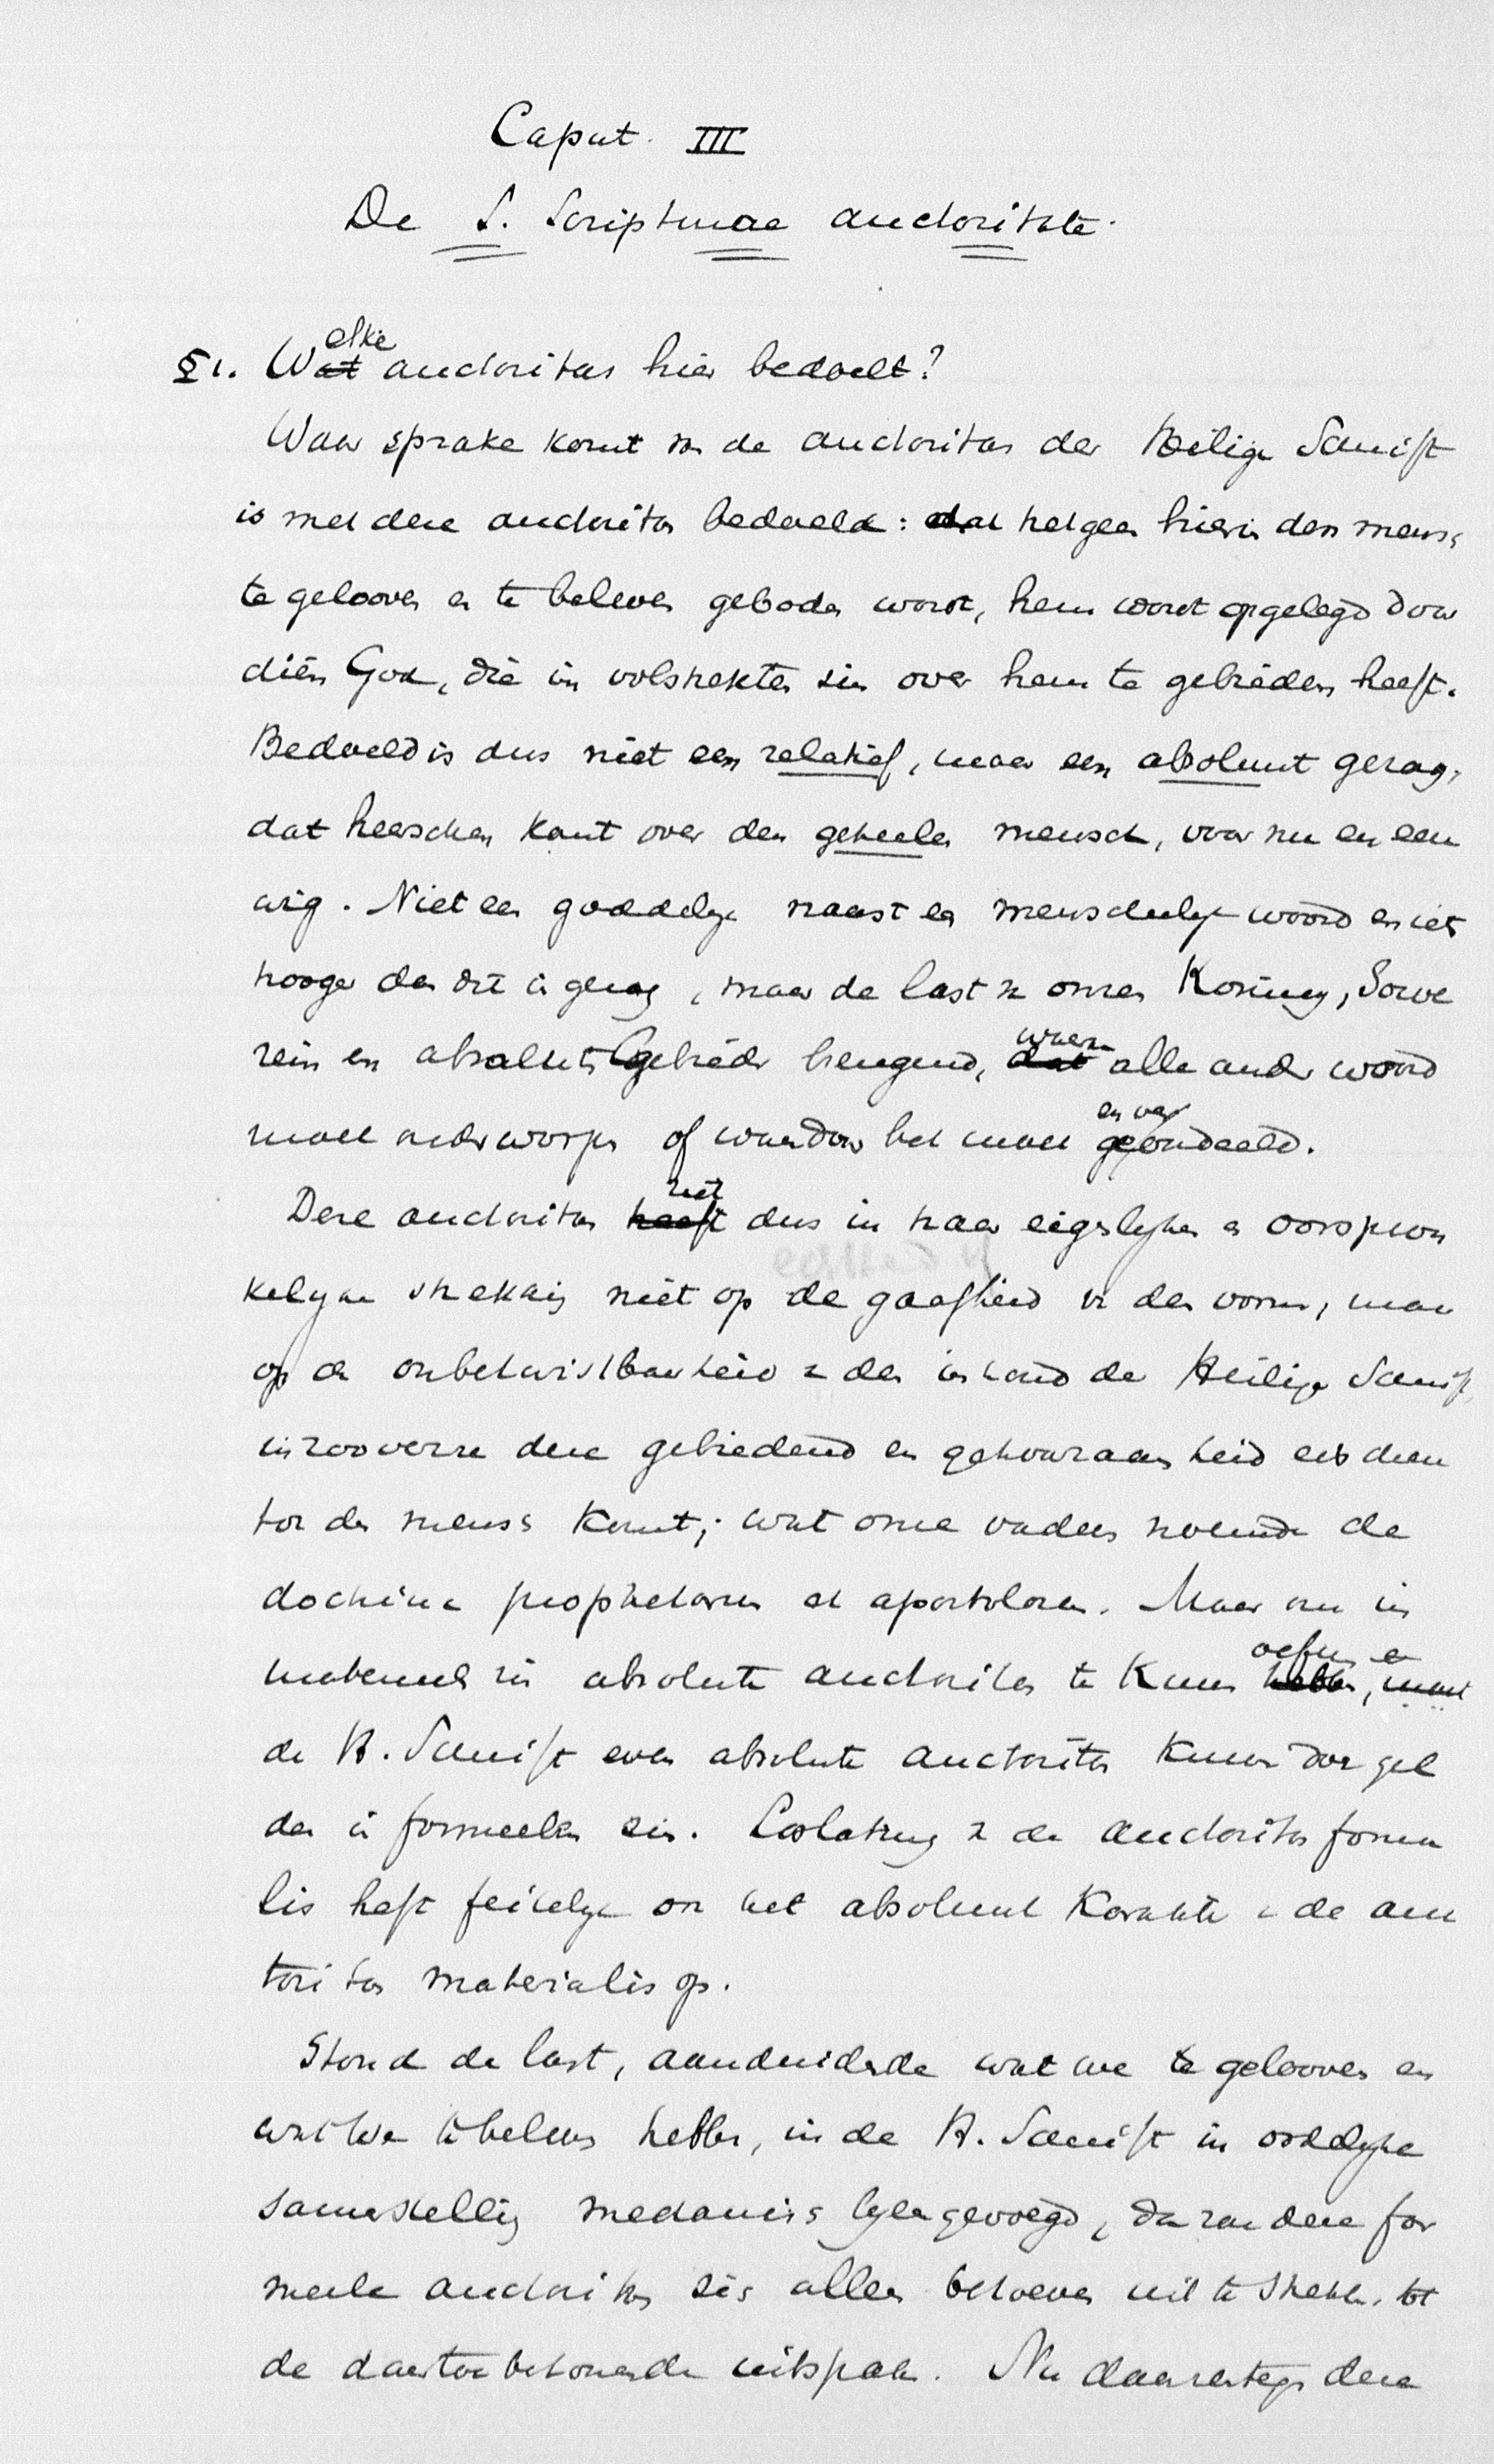 Caput. III
De S. Scripturae auctoritate.
§1. Welke auctoritas hier bedoelt?
Waar sprake komt van de auctoritas der Heilige Schrift
is met deze auctoritas bedoeld: dat hetgeen hierin den mens
te gelooven en te beleven geboden wordt, hem wordt opgelegd door
dien God, die in volstrekten zin over hem te gebieden heeft.
Bedoeld is dus niet een relatief, maar een absoluut gezag,
dat heerschen komt over den geheelen mensch, voor nu en eeu
wig. Niet een goddelijk naast een menschelijk woord en iets
hooger dan dit in gezag, maar de last van onzen Koning, Souve
rein en absoluten Gebieder brengend, waaraan alle ander woord
moet onderworpen of waardoor het moet en veroordeeld.
Deze auctoritas ziet dus in haar eigenlijken en oorspron
kelijken strekking niet op de gaafheid van den vorm, maar
op de onbetwistbaarheid van den inhoud der Heilige Schrift,
inzooverre deze gebiedend en gehoorzaamheid eisschen
tot den mensch komt; wat onze vaderen noemden de
doctrina prophetarum et apostolorum. Maar om in
materieelen zin absolute auctoritas te kunnen oefenen en
de H. Schrift even absolute auctoritas kunnen doen gel
den in formeelen zin. Loslating van de auctoritas forma
lis heft feitelijk ook het absoluut karakter van de auc
toritas materialis op.
Stond de last, aanduidende wat we te gelooven en
wat we te beleven hebben, in de H. Schrift in ordelijke
samenstelling mechanisch bijeengevoegd, dan zou deze for
meele auctoritas zich alleen behoeven uit te strekken tot
de daartoe behoorende uitspraken. Nu daarentegen deze